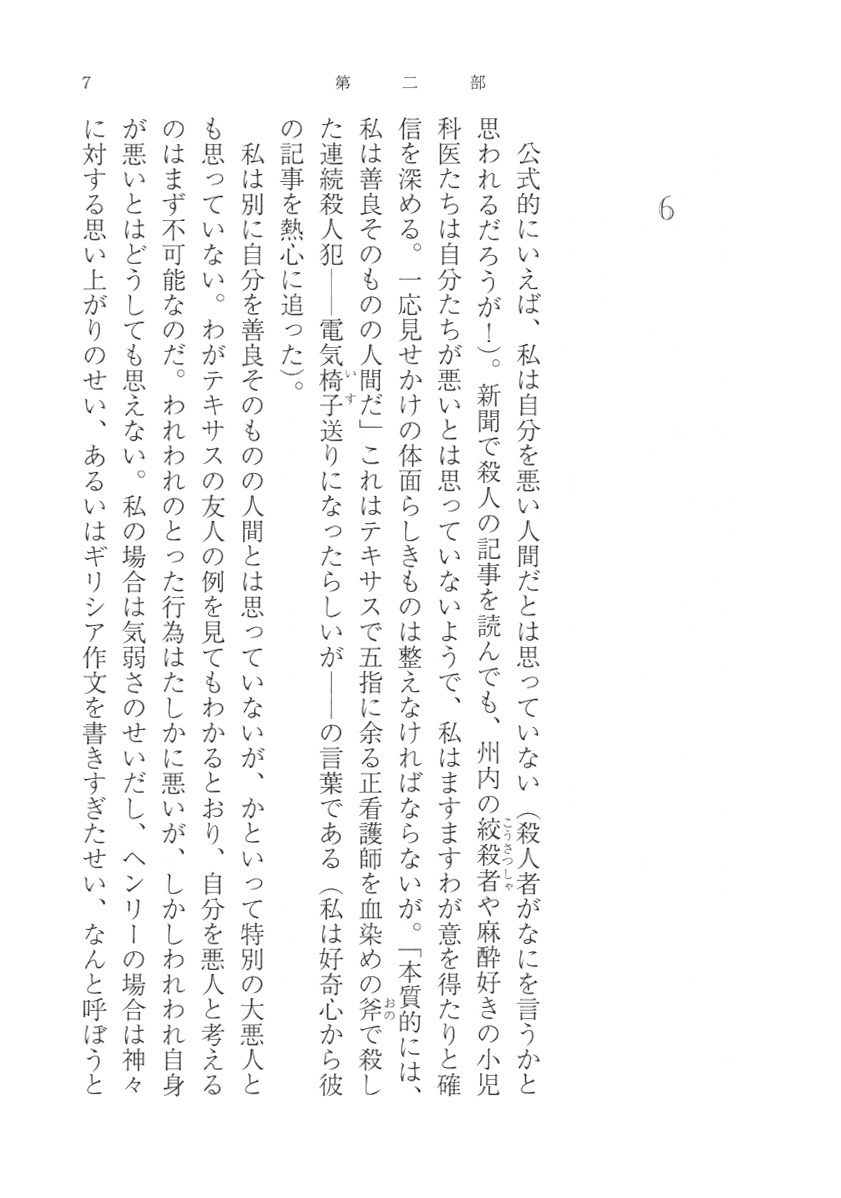 7
第二部
6
公式的にいえば、私は自分を悪い人間だとは思っていない（殺人者がなにを言うかと
思われるだろうが！）。新聞で殺人の記事を読んでも、州内の絞殺者や麻酔好きの小児
こうさつしゃ
科医たちは自分たちが悪いとは思っていないようで、私はますますわが意を得たりと確
信を深める。一応見せかけの体面らしきものは整えなければならないが。「本質的には、
私は善良そのものの人間だ」これはテキサスで五指に余る正看護師を血染めの斧で殺し
おの
た連続殺人犯――電気椅子送りになったらしいが――の言葉である（私は好奇心から彼
いす
の記事を熱心に追った）。
私は別に自分を善良そのものの人間とは思っていないが、かといって特別の大悪人と
も思っていない。わがテキサスの友人の例を見てもわかるとおり、自分を悪人と考える
のはまず不可能なのだ。われわれのとった行為はたしかに悪いが、しかしわれわれ自身
が悪いとはどうしても思えない。私の場合は気弱さのせいだし、ヘンリーの場合は神々
に対する思い上がりのせい、あるいはギリシア作文を書きすぎたせい、なんと呼ぼうと